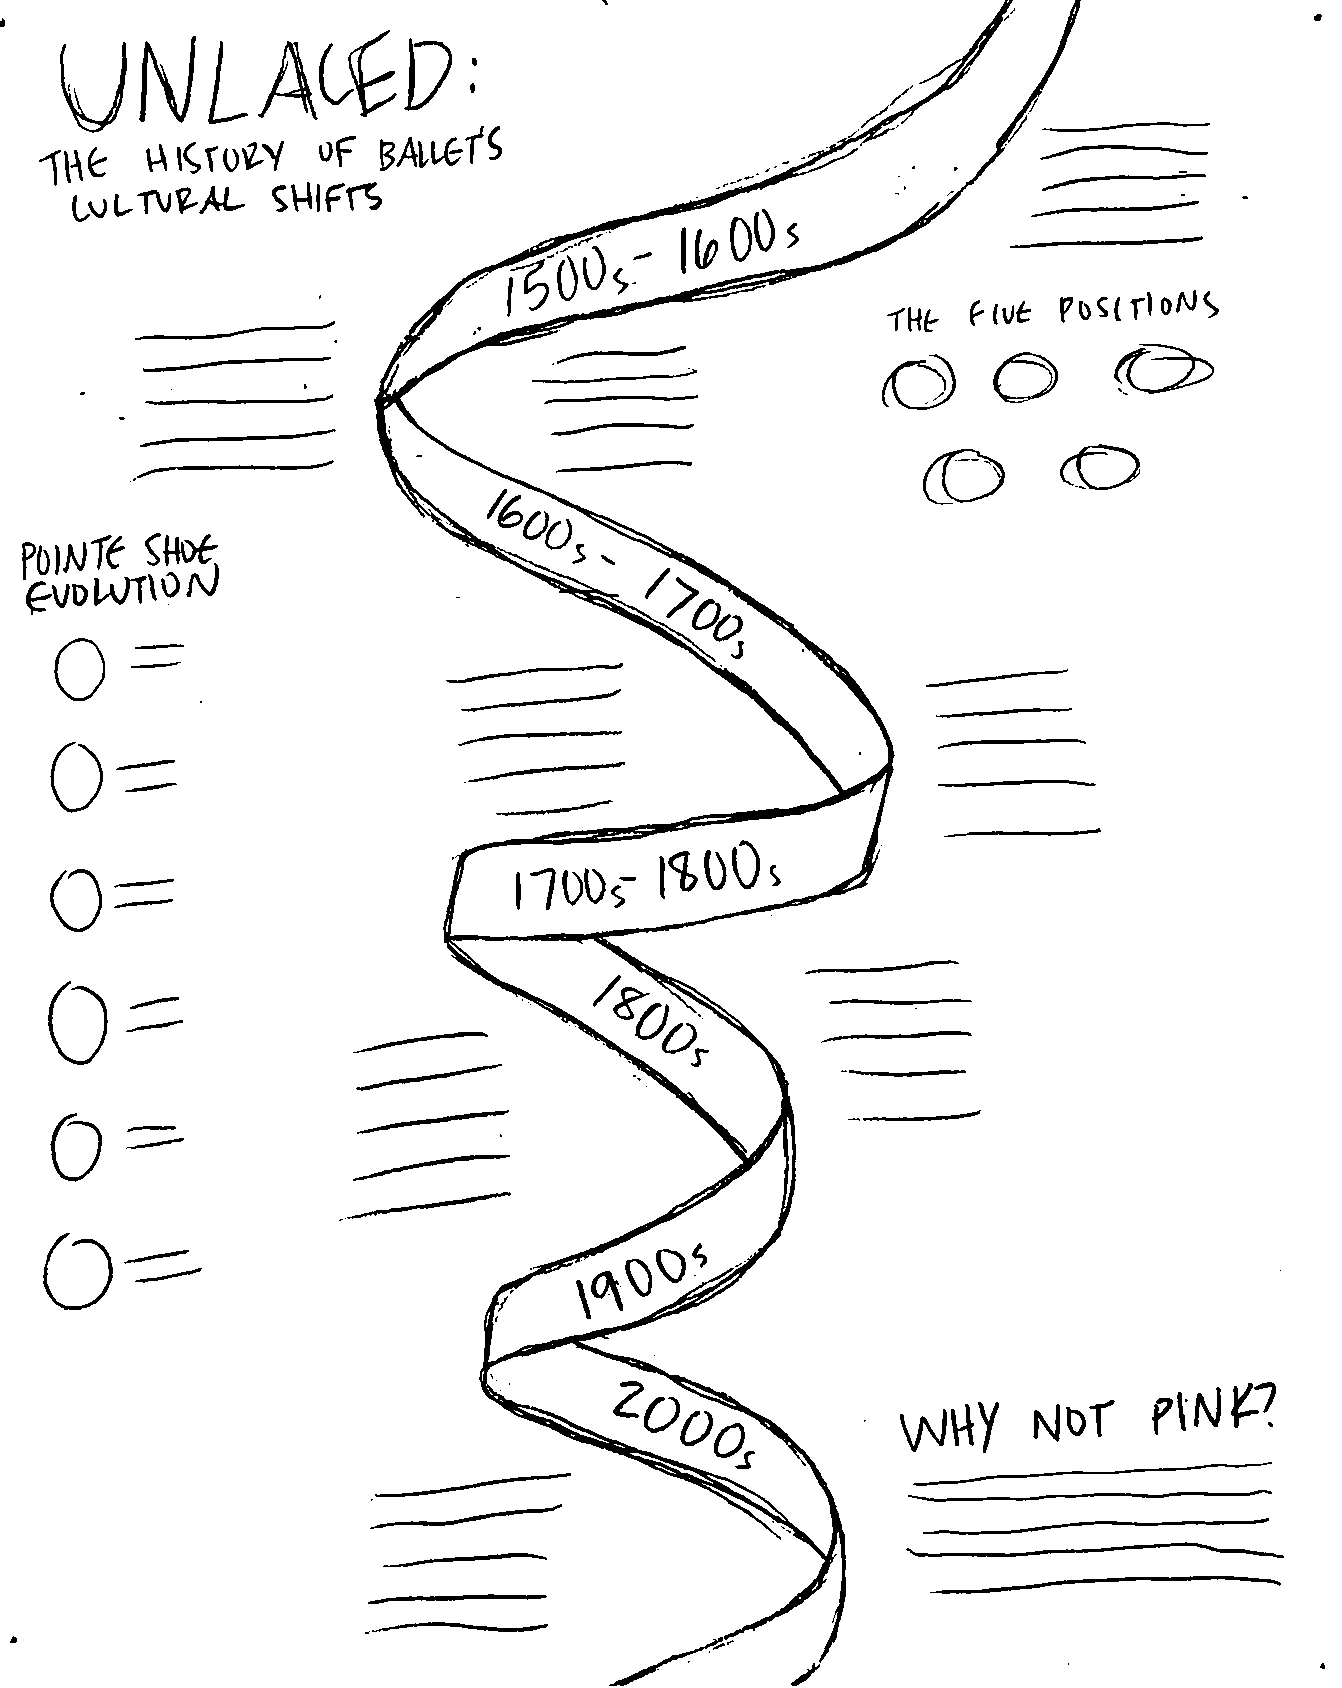 UNLACED:
THE HISTORY OF BALLET'S
CULTURAL SHIFTS
1500s - 1600s
THE FIVE POSITIONS
1600s - 1700s
POINTE SHOE
EVOLUTION
1700s - 1800s
1800s
1900s
2000s
WHY NOT PINK?